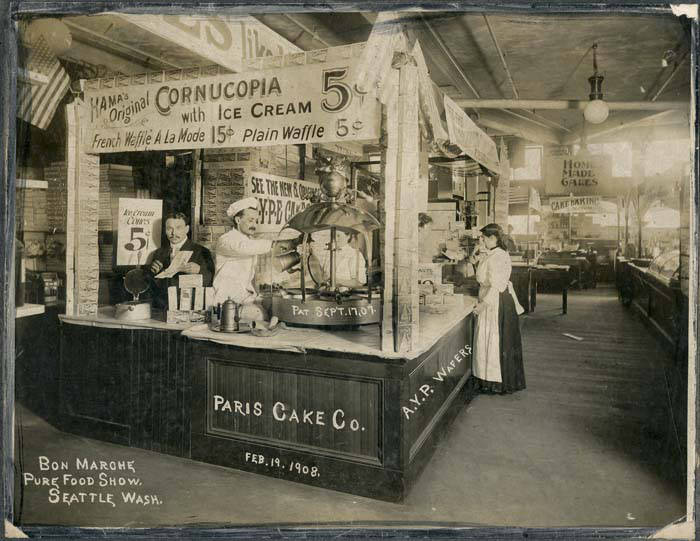 like
HAMA'S
Original CORNUCOPIA 5¢
with ICE CREAM
French Waffle A La Mode 15¢ Plain Waffle 5¢
Ice Cream
Cones
5¢
SEE THE NEW
A-Y-P-B
PAT SEPT. 17, 07.
HOME
MADE
CAKES
CAKE BAKING
PARIS CAKE CO.
FEB. 19. 1908.
A.Y.P. WAFERS
BON MARCHE
PURE FOOD SHOW.
SEATTLE WASH.